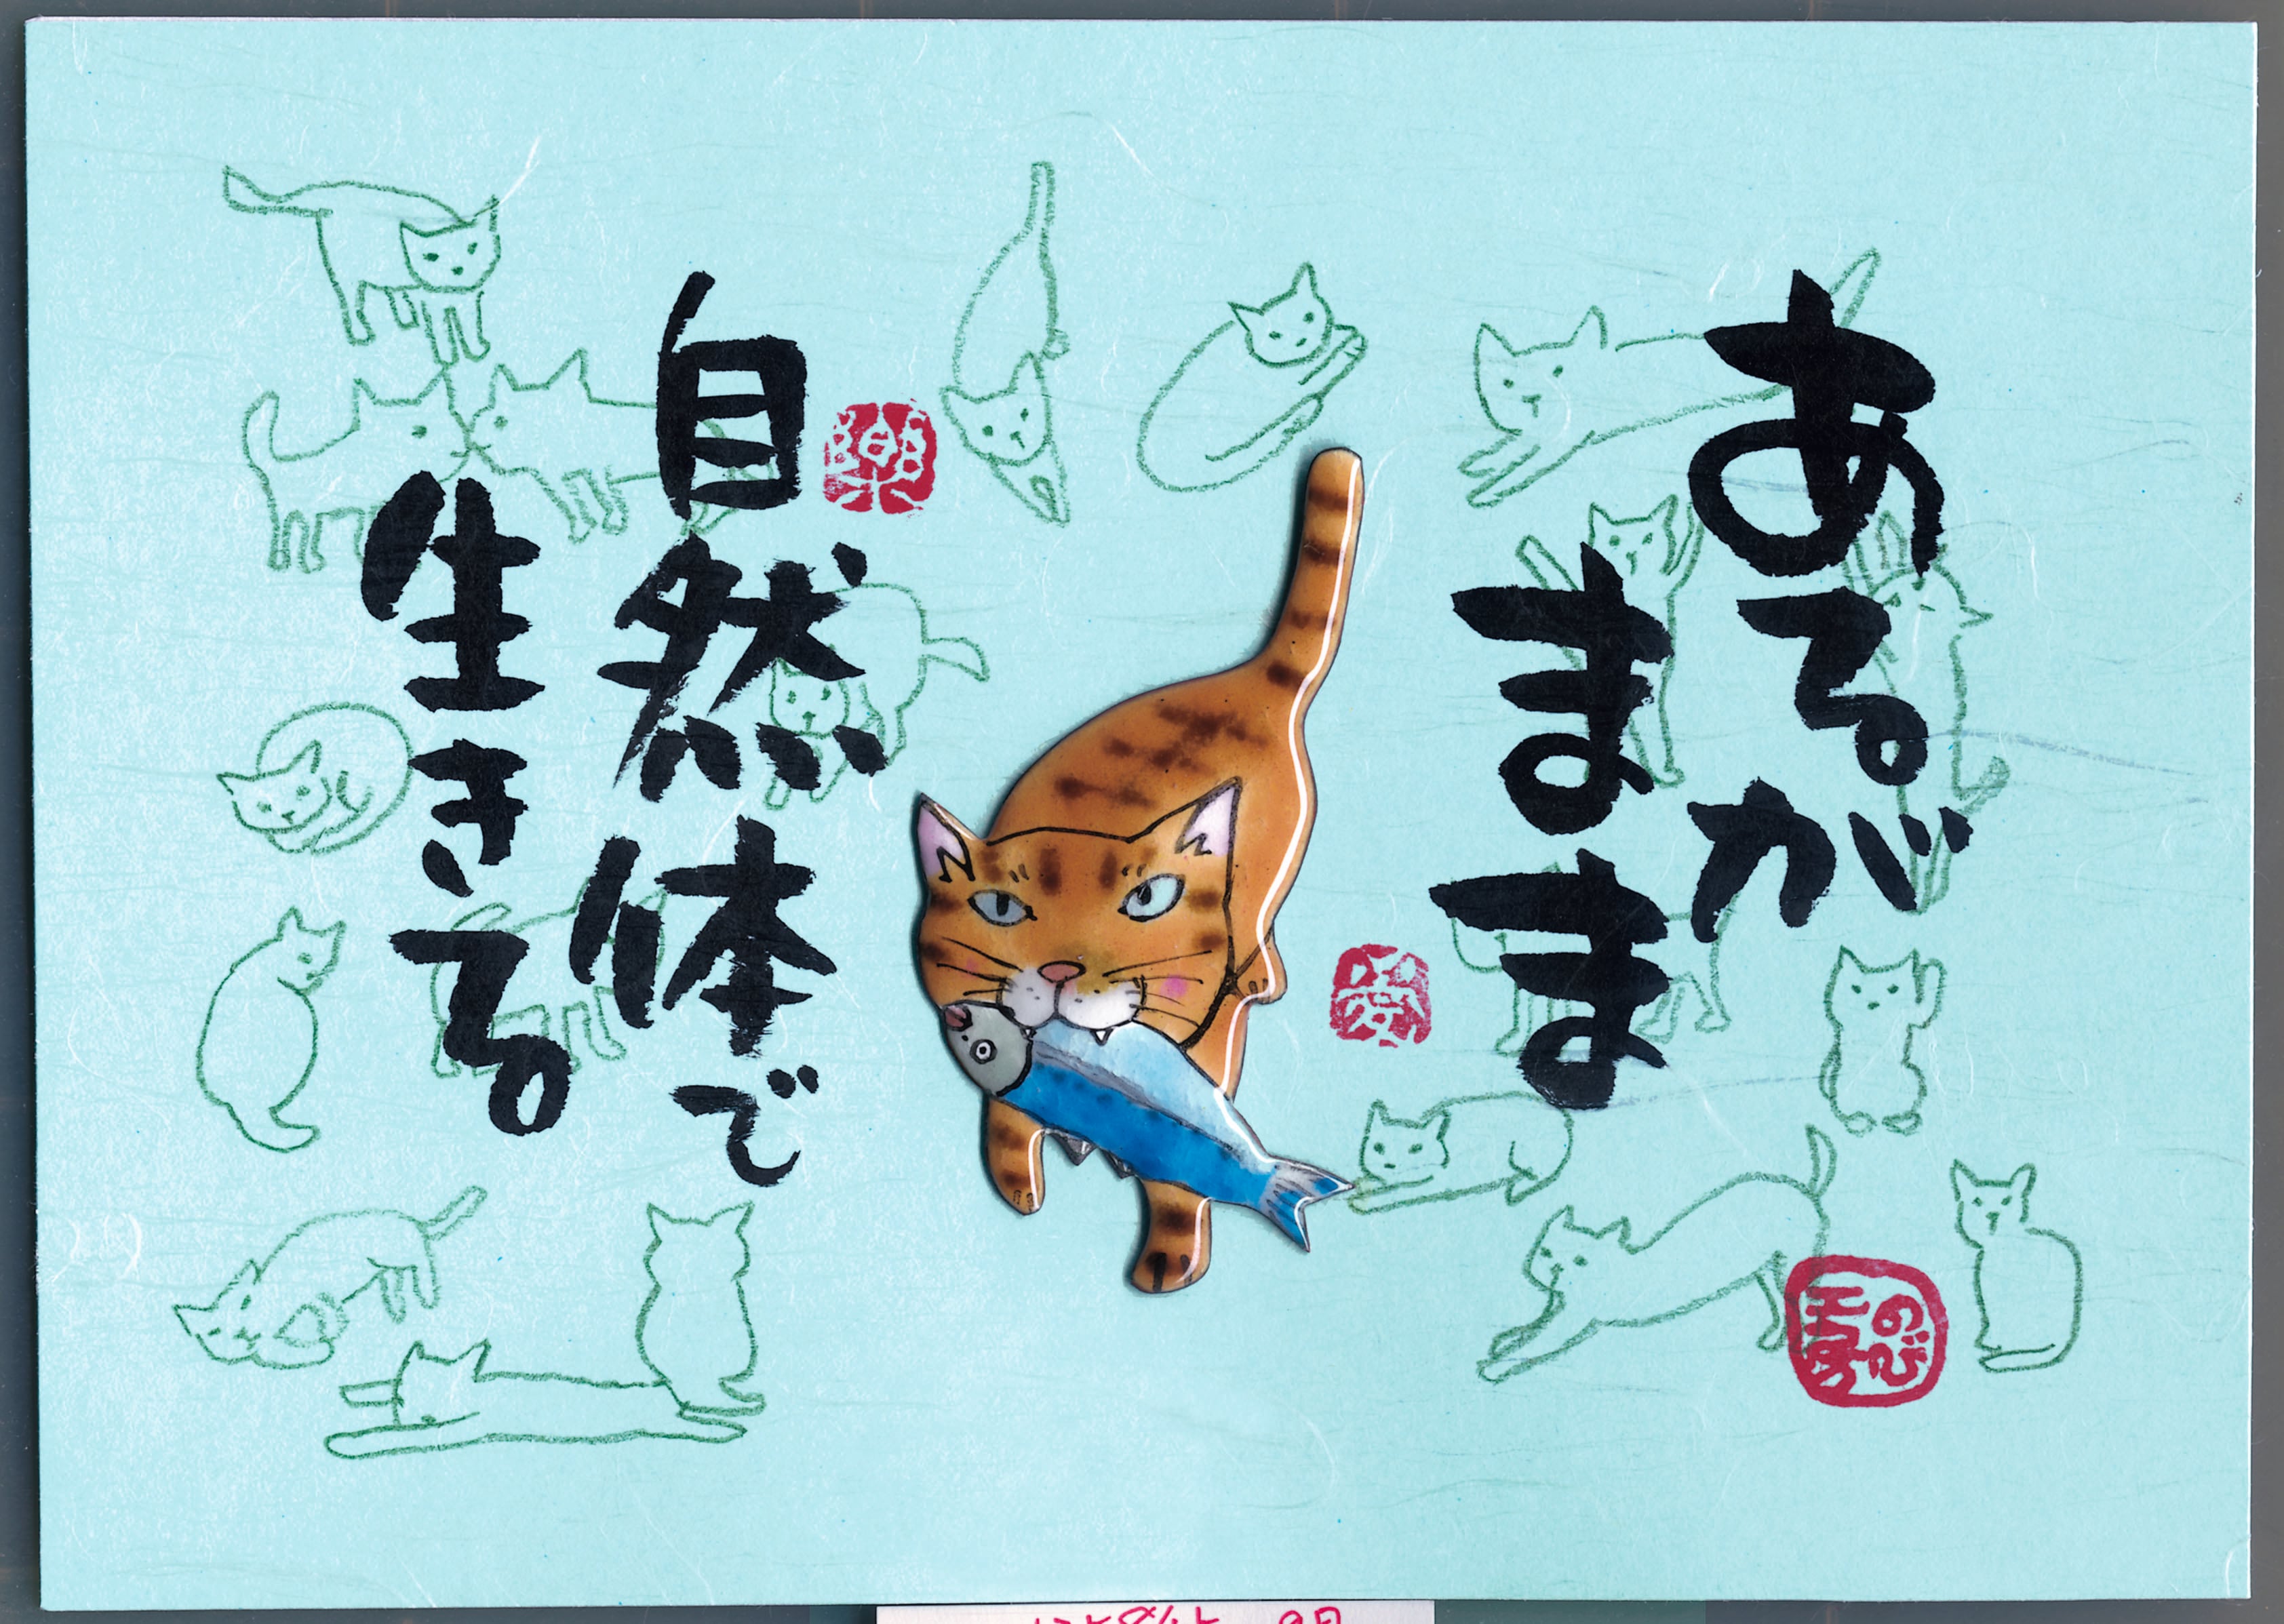 あるが
まま
自然体で
生きる
楽
愛
のび